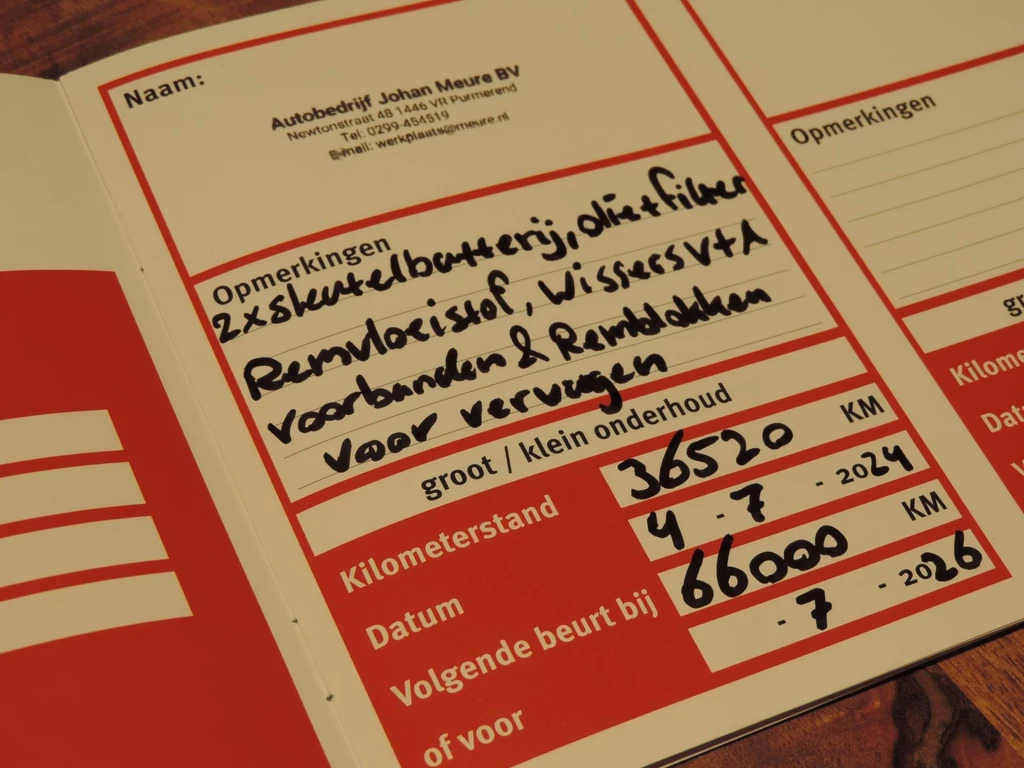 Naam:
Autobedrijf Johan Meure BV
Newtonstraat 48 1446 VR Purmerend
Tel: 0299-454519
E-mail: werkplaats@meure.nl
Opmerkingen
2x sleutelbatterij, olie + filter
Remvloeistof, Wissers V+A
voorbanden & Remblokken
voor vervragen
groot / klein onderhoud
Kilometerstand 36520 KM
Datum 4 - 7 - 2024
Volgende beurt bij 66000 KM
of voor - 7 - 2026
Opmerkingen